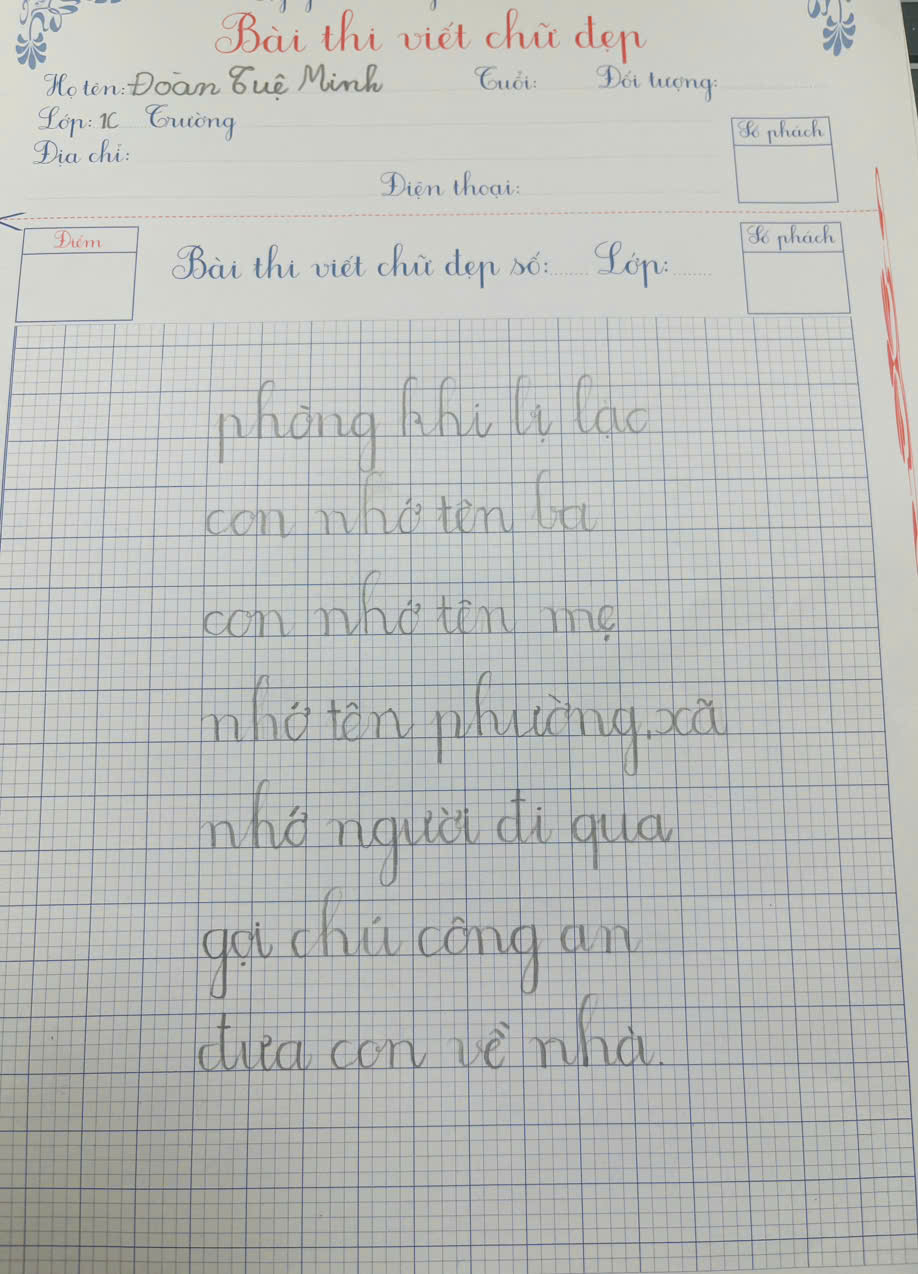 Bài thi viết chữ đẹp
Họ tên: Đoàn Tuệ Minh Tuổi: Đối tượng:
Lớp: 1C Trường
Địa chỉ:
Số phách
Điện thoại:
Điểm
Bài thi viết chữ đẹp số: Lớp:
Số phách
phòng khi bị lạc
con nhớ tên ba
con nhớ tên mẹ
nhớ tên phường, xã
nhớ người đi qua
gọi chú công an
đưa con về nhà.